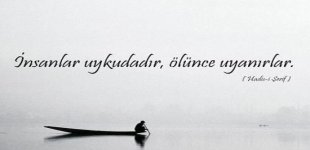 İnsanlar uykudadır, ölünce uyanırlar.
( Hadis-i Şerif )